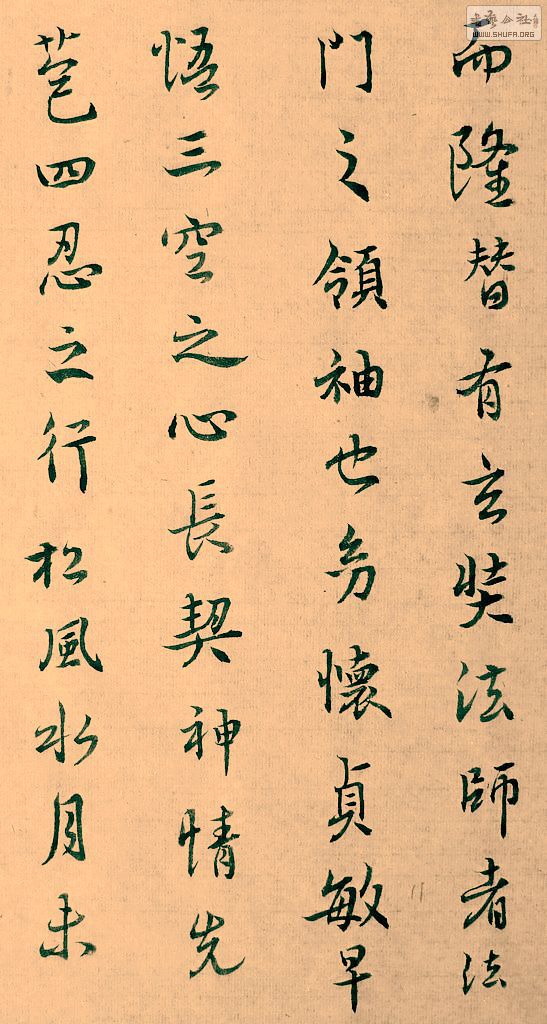 書藝公社
WWW.SHUFA.ORG
而隆替有玄奘法師者法
門之領袖也幼懷貞敏早
悟三空之心長契神情先
苞四忍之行松風水月未